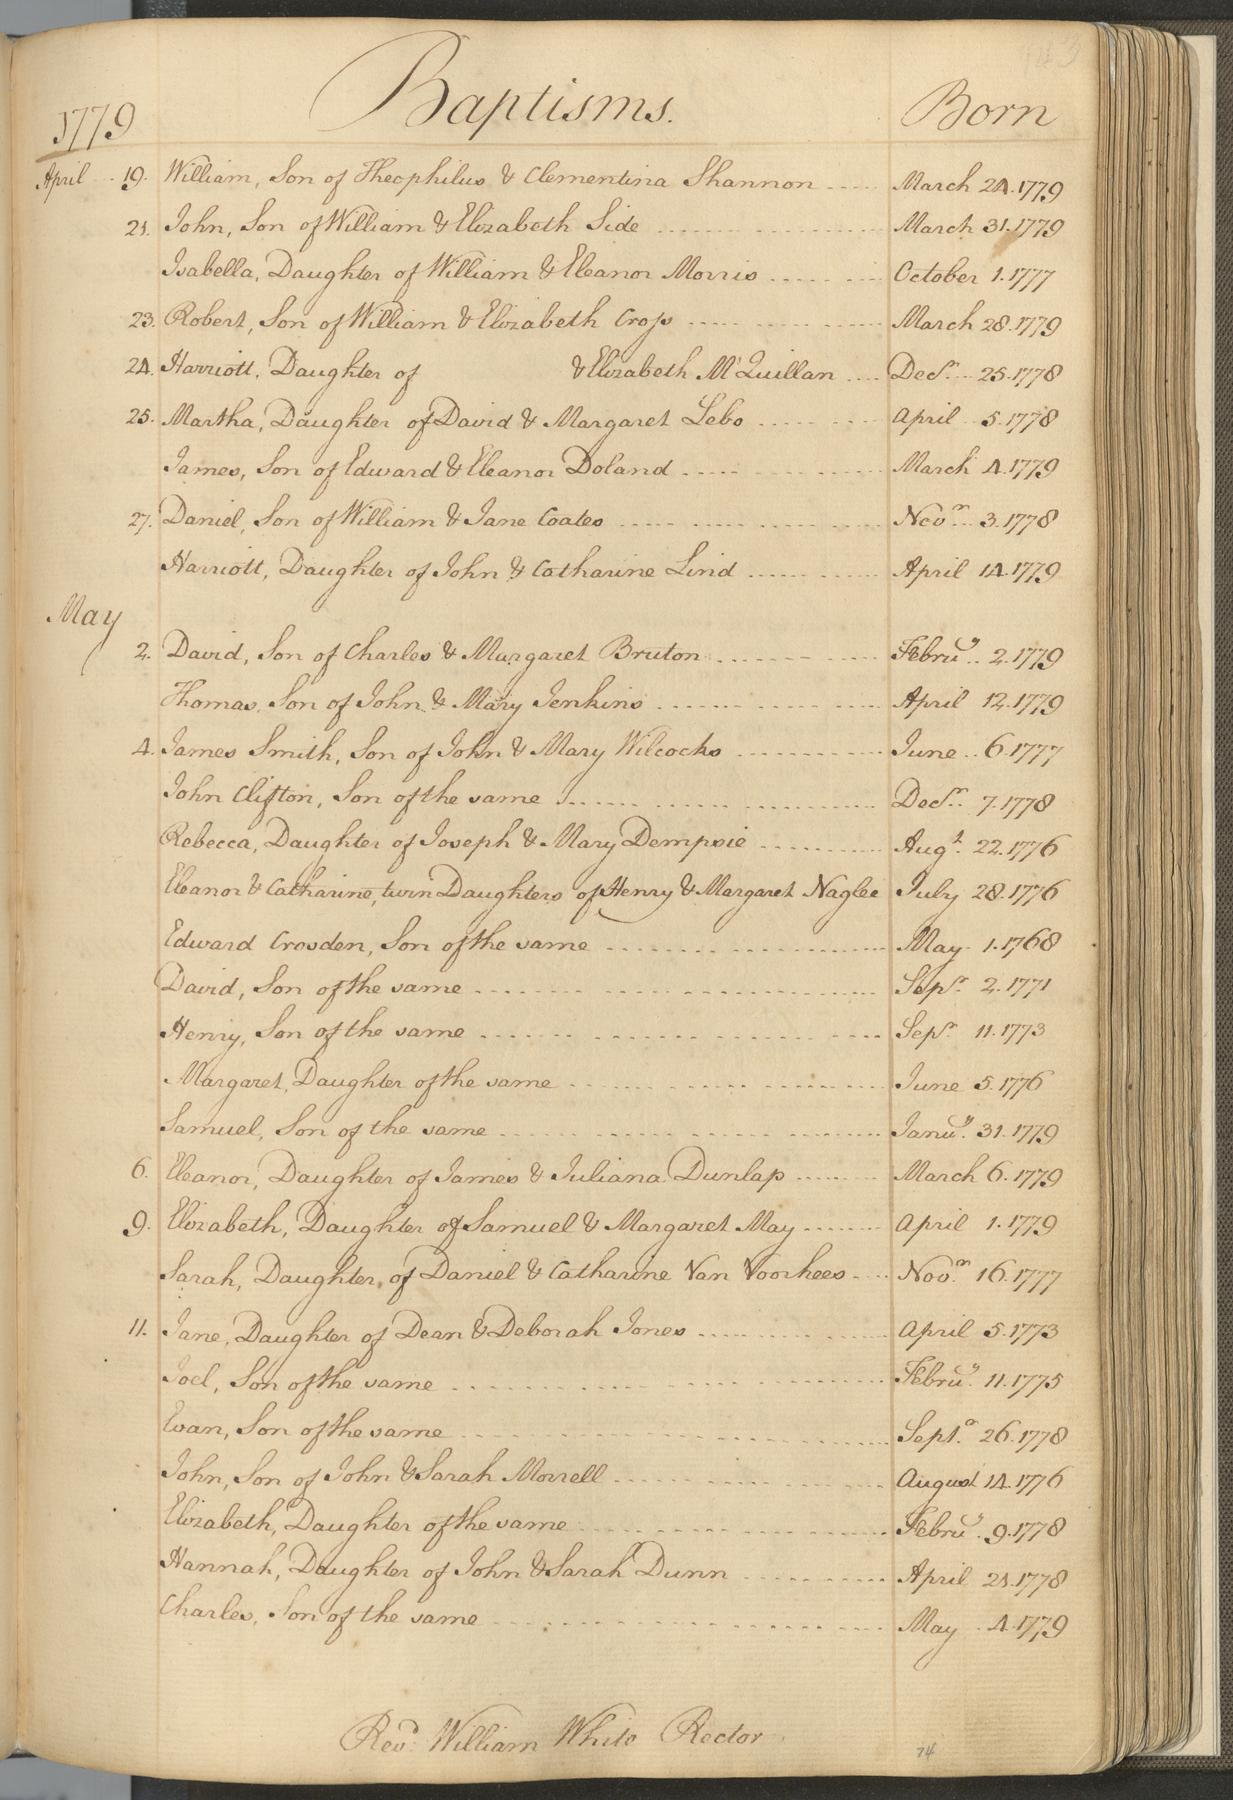 1779 Baptisms. Born
April 19. William, Son of Theophilus & Clementina Shannon March 24. 1779
21. John, Son of William & Elizabeth Side March 31. 1779
Isabella, Daughter of William & Eleanor Morris October 1. 1777
23. Robert, Son of William & Elizabeth Cross March 28. 1779
24. Harriott, Daughter of & Elizabeth McQuillan Decr. 25. 1778
25. Martha, Daughter of David & Margaret Lebo April 5. 1778
James, Son of Edward & Eleanor Doland March 4. 1779
27. Daniel, Son of William & Jane Coates Novr. 3. 1778
Harriott, Daughter of John & Catharine Lind April 14. 1779
May
2. David, Son of Charles & Margaret Bruton Febru'y. 2. 1779
Thomas, Son of John & Mary Jenkins April 12. 1779
4. James Smith, Son of John & Mary Wilcocks June 6. 1777
John Clifton, Son of the same Decr. 7. 1778
Rebecca, Daughter of Joseph & Mary Dempsie Augt. 22. 1776
Eleanor & Catharine, twin Daughters of Henry & Margaret Naglee July 28. 1776
Edward Crosden, Son of the same May 1. 1768
David, Son of the same Sepr. 2. 1771
Henry, Son of the same Sepr. 11. 1773
Margaret, Daughter of the same June 5. 1776
Samuel, Son of the same Janu'y. 31. 1779
6. Eleanor, Daughter of James & Juliana Dunlap March 6. 1779
9. Elizabeth, Daughter of Samuel & Margaret May April 1. 1779
Sarah, Daughter of Daniel & Catharine Van Voorhees Novr. 16. 1777
11. Jane, Daughter of Dean & Deborah Jones April 5. 1773
Joel, Son of the same Febru'y. 11. 1775
Evan, Son of the same Septr. 26. 1778
John, Son of John & Sarah Morrell August 14. 1776
Elizabeth, Daughter of the same Febru'y. 9. 1778
Hannah, Daughter of John & Sarah Dunn April 21. 1778
Charles, Son of the same May 4. 1779
Revd. William White Rector
74